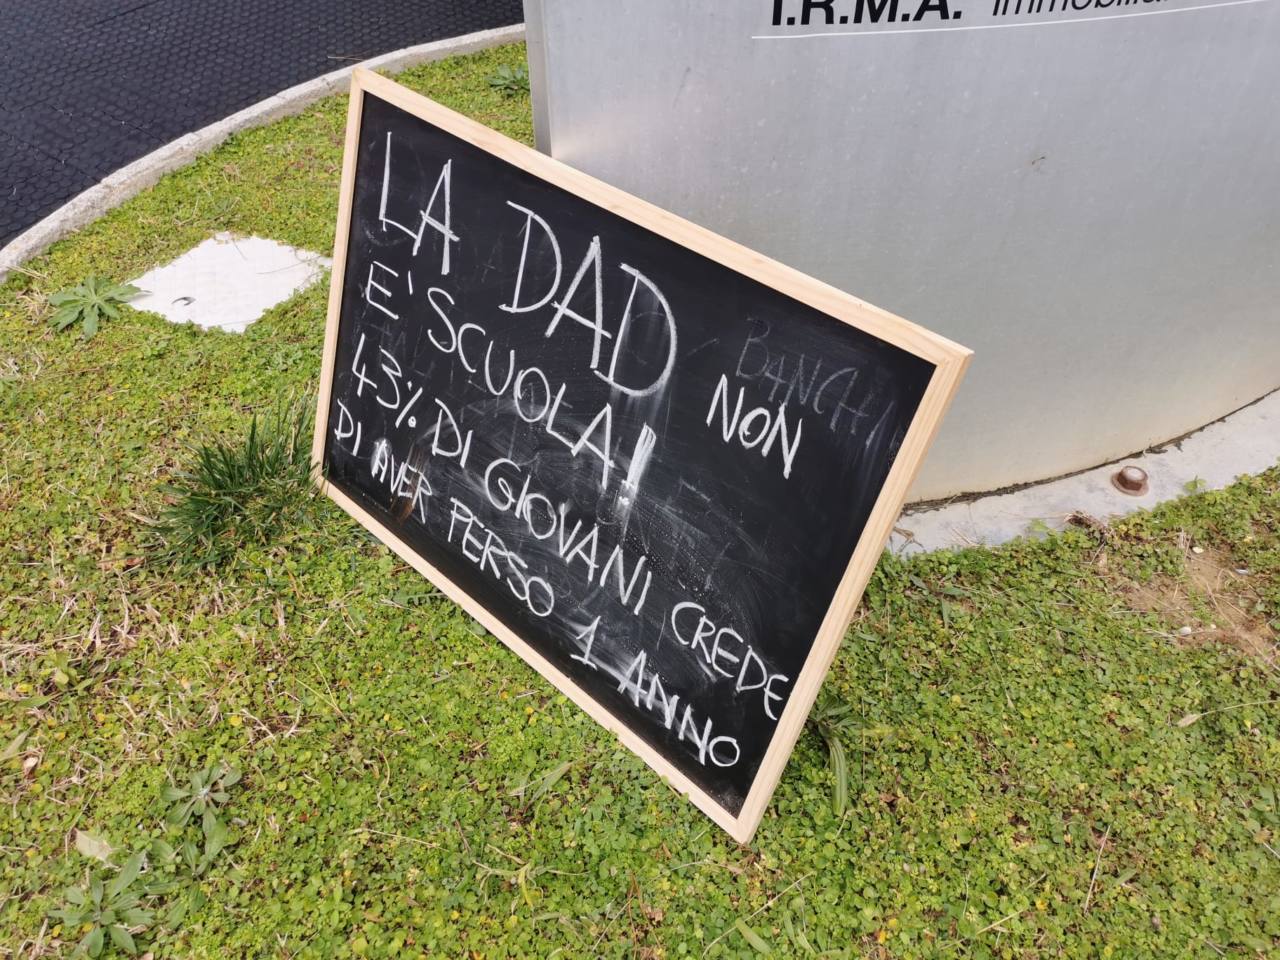 I.R.M.A. immobiliar
LA DAD NON
E' SCUOLA!
43% DI GIOVANI CREDE
DI AVER PERSO 1 ANNO
BANCHI